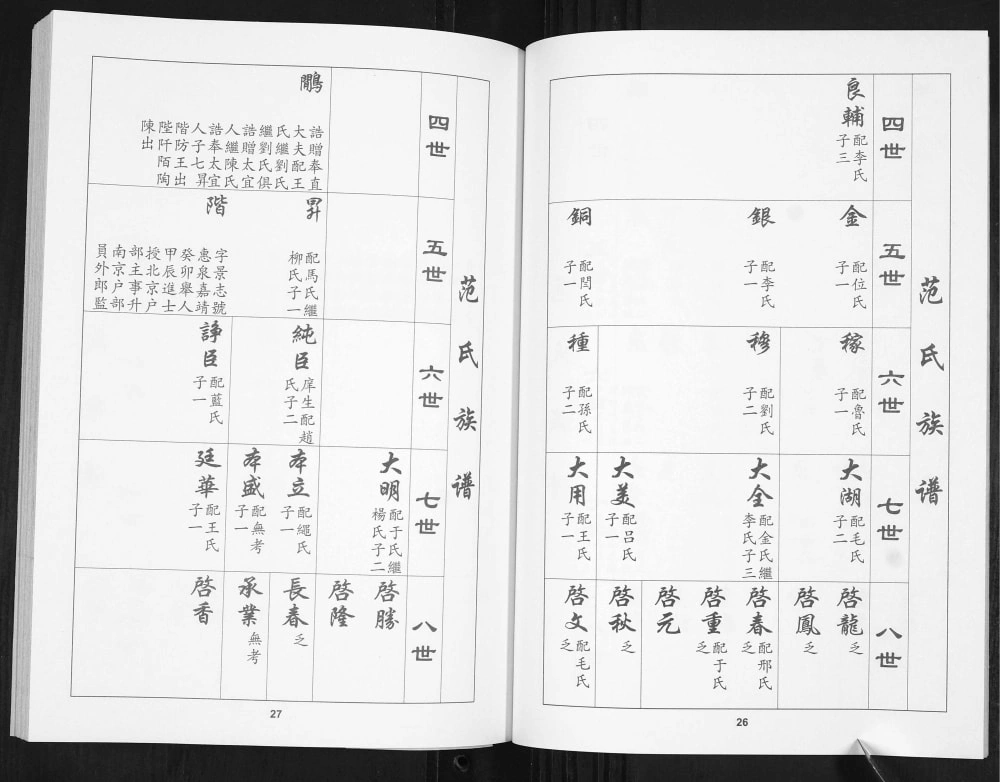 范氏族谱
四世
良輔
配李氏
子三
五世
金
配位氏
子一
銀
配李氏
子一
銅
配閆氏
子一
六世
稼
配魯氏
子一
穆
配劉氏
子二
種
配孫氏
子二
七世
大湖
配毛氏
子二
大全
配金氏繼
李氏子三
大美
配呂氏
子一
大用
配王氏
子一
八世
啓龍
乏
啓鳳
乏
啓春
配邢氏
乏
啓重
配于氏
乏
啓元
啓秋
乏
啓文
配毛氏
乏
26
范氏族谱
四世
鵰
誥贈奉直
大夫配王
氏繼劉氏
繼劉氏俱
誥贈太宜
人繼陳氏
誥奉太宜
人子七昇
階防王出
陞阡陌陶
陳出
五世
昇
配馬氏繼
柳氏子一
階
字景志號
惠泉嘉靖
癸卯舉人
甲辰進士
授北京户
部主事升
南京户部
員外郎監
六世
純臣
庠生配趙
氏子二
諍臣
配藍氏
子一
七世
大明
配于氏繼
楊氏子二
本立
配繩氏
子一
本盛
配無考
子一
廷華
配王氏
子一
八世
啓勝
啓隆
長春
乏
承業
無考
啓香
27